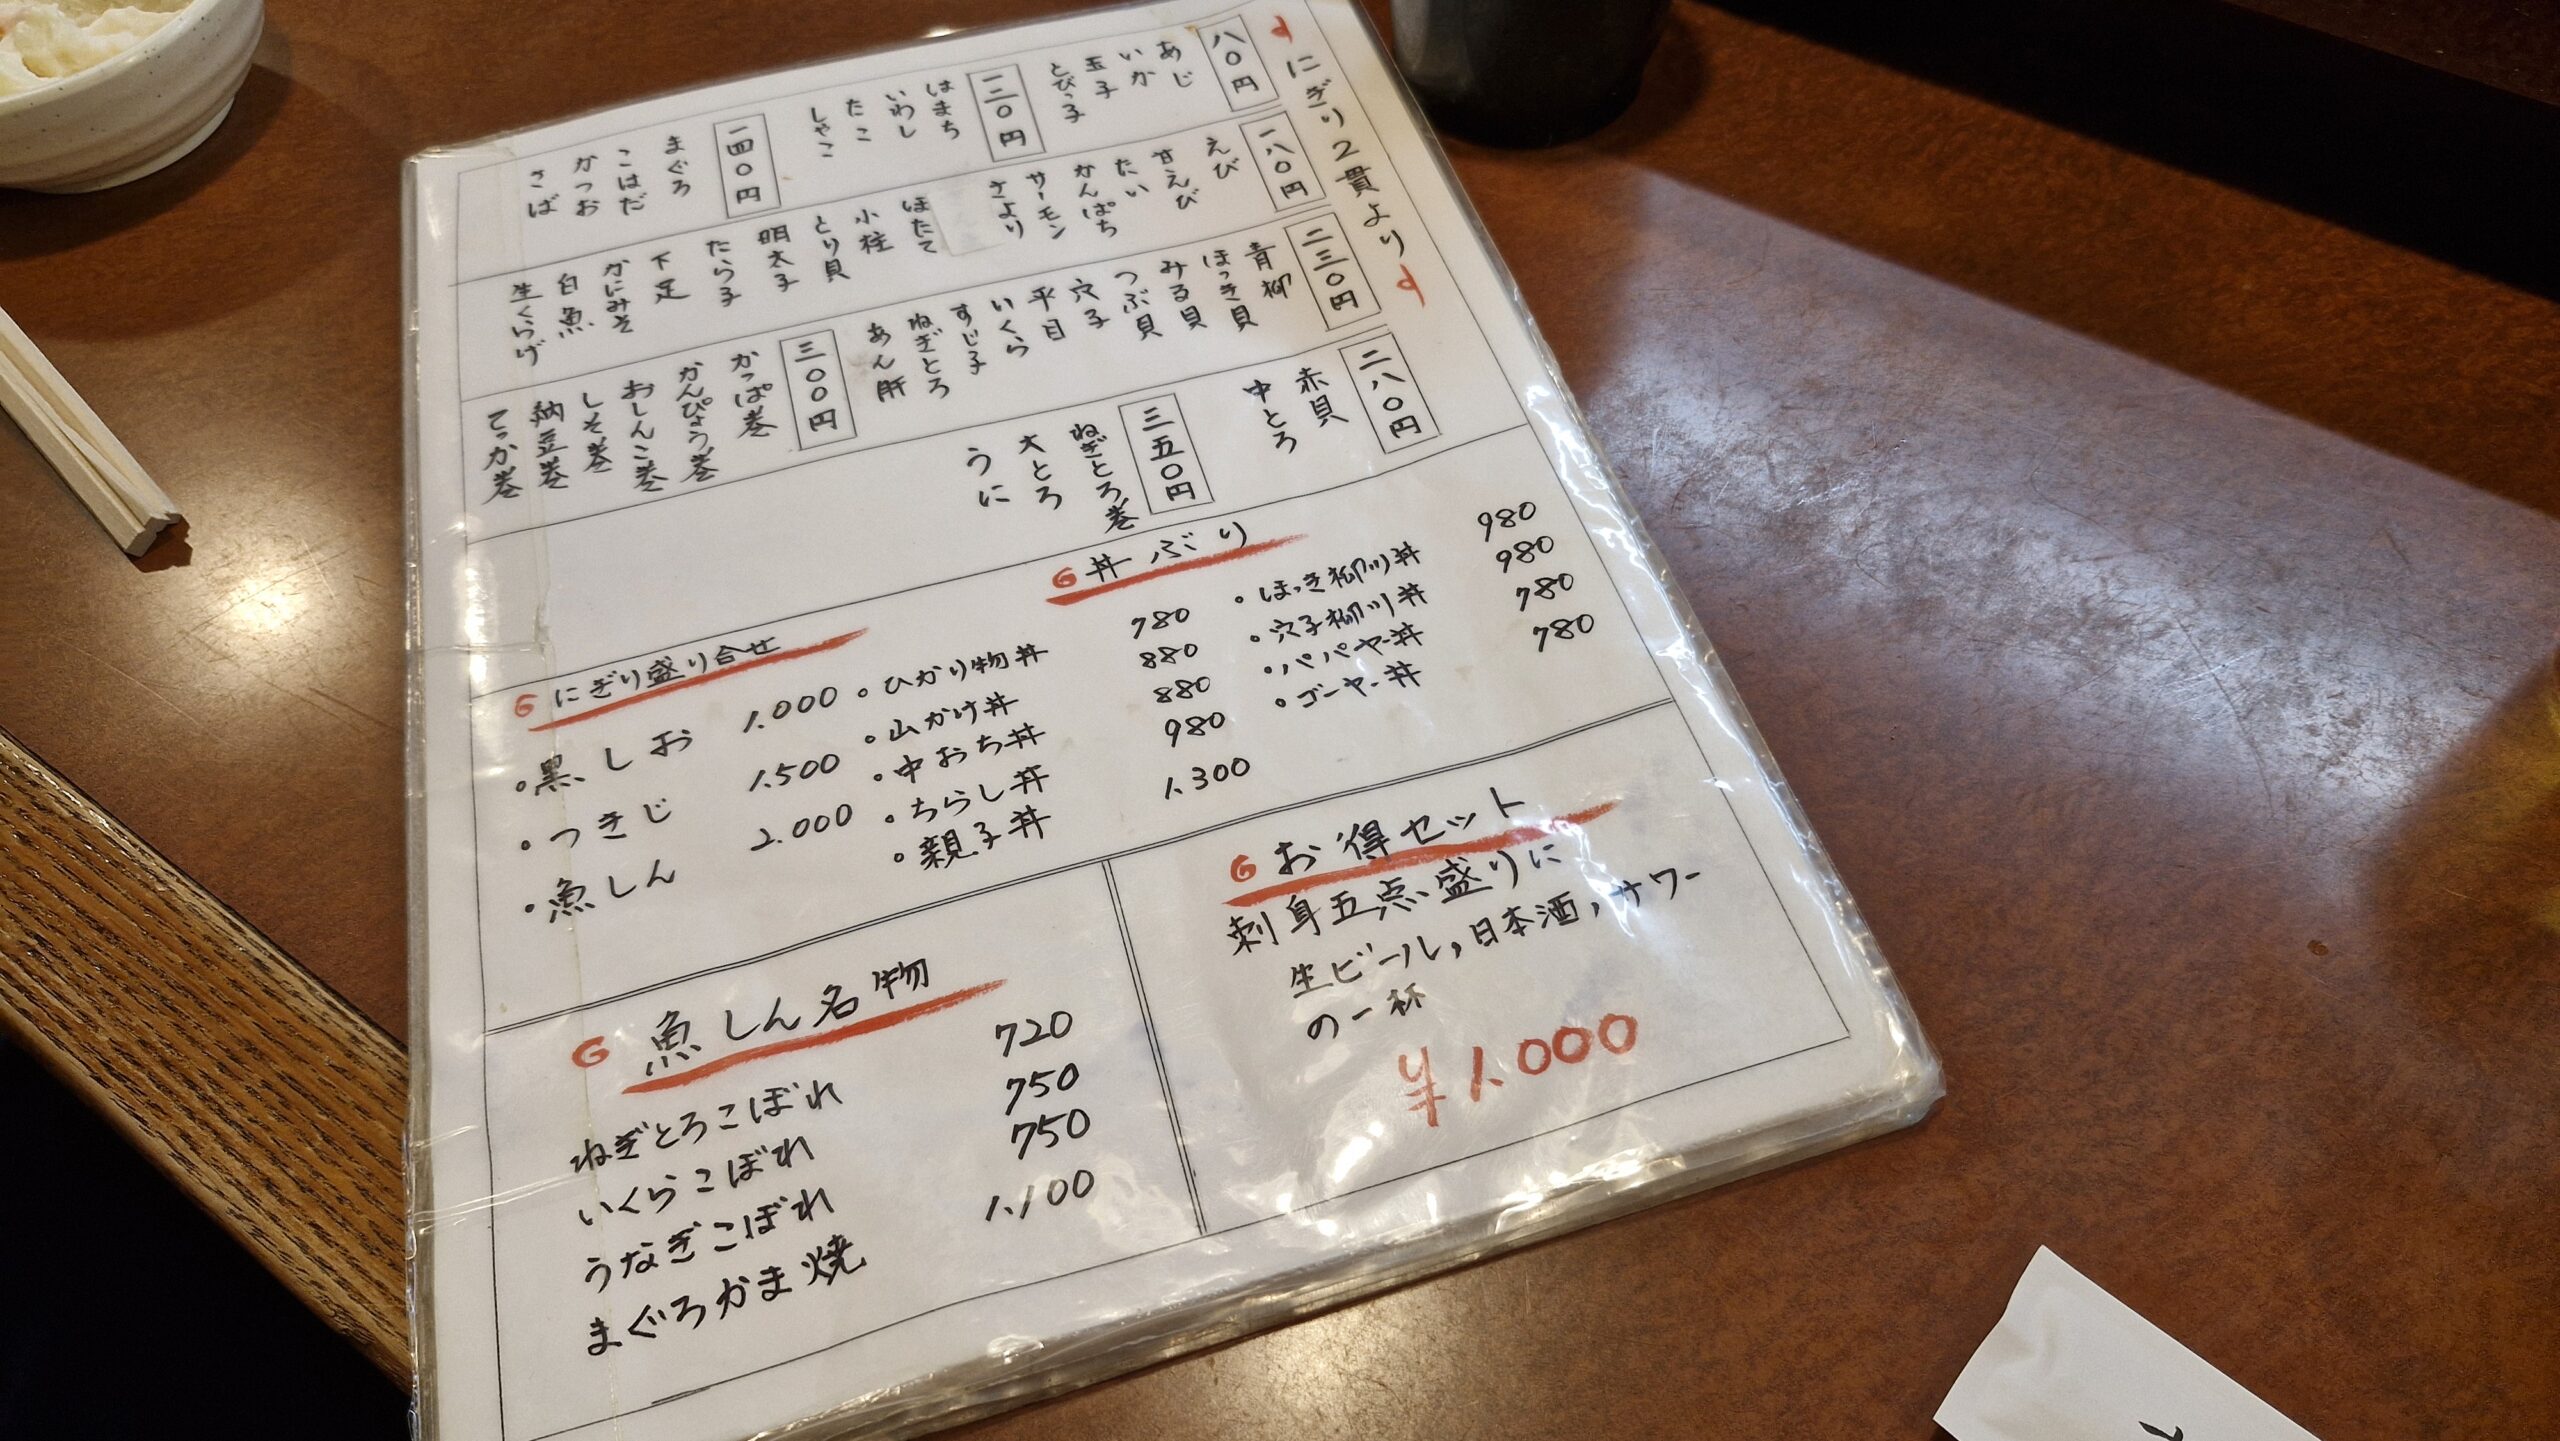 にぎり2貫より
八〇円
あじ
いか
玉子
とびっ子
一三〇円
はまち
いわし
たこ
しゃこ
一四〇円
まぐろ
こはだ
かつお
さば
一八〇円
えび
甘えび
たい
かんぱち
サーモン
さより
ほたて
小柱
とり貝
明太子
たら子
下足
かにみそ
白魚
生くらげ
二三〇円
青柳
ほっき貝
みる貝
つぶ貝
穴子
平目
いくら
すじ子
ねぎとろ
あん肝
三〇〇円
かっぱ巻
かんぴょう巻
おしんこ巻
しそ巻
納豆巻
てっか巻
二八〇円
赤貝
中とろ
三五〇円
ねぎとろ巻
大とろ
うに
にぎり盛り合せ
・黒しお 1.000
・つきじ 1.500
・魚しん 2.000
丼ぶり
・ひかり物丼 780
・山かけ丼 880
・中おち丼 880
・ちらし丼 980
・親子丼 1.300
・ほっき柳川丼 980
・穴子柳川丼 980
・パパヤー丼 780
・ゴーヤー丼 780
魚しん名物
ねぎとろこぼれ 720
いくらこぼれ 750
うなぎこぼれ 750
まぐろかま焼 1.100
お得セット
刺身五点盛りに
生ビール,日本酒,サワー
の一杯
¥1.000